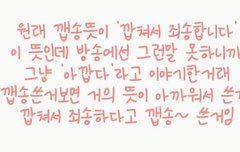 원래 깹송뜻이 '깝쳐서 죄송합니다'
이 뜻인데 방송에선 그런말 못하니까
그냥 '아깝다'라고 이야기한거래
깹송쓴거보면 거의 뜻이 아까워서 쓴
깝쳐서 죄송하다고 깹송~ 쓴거임